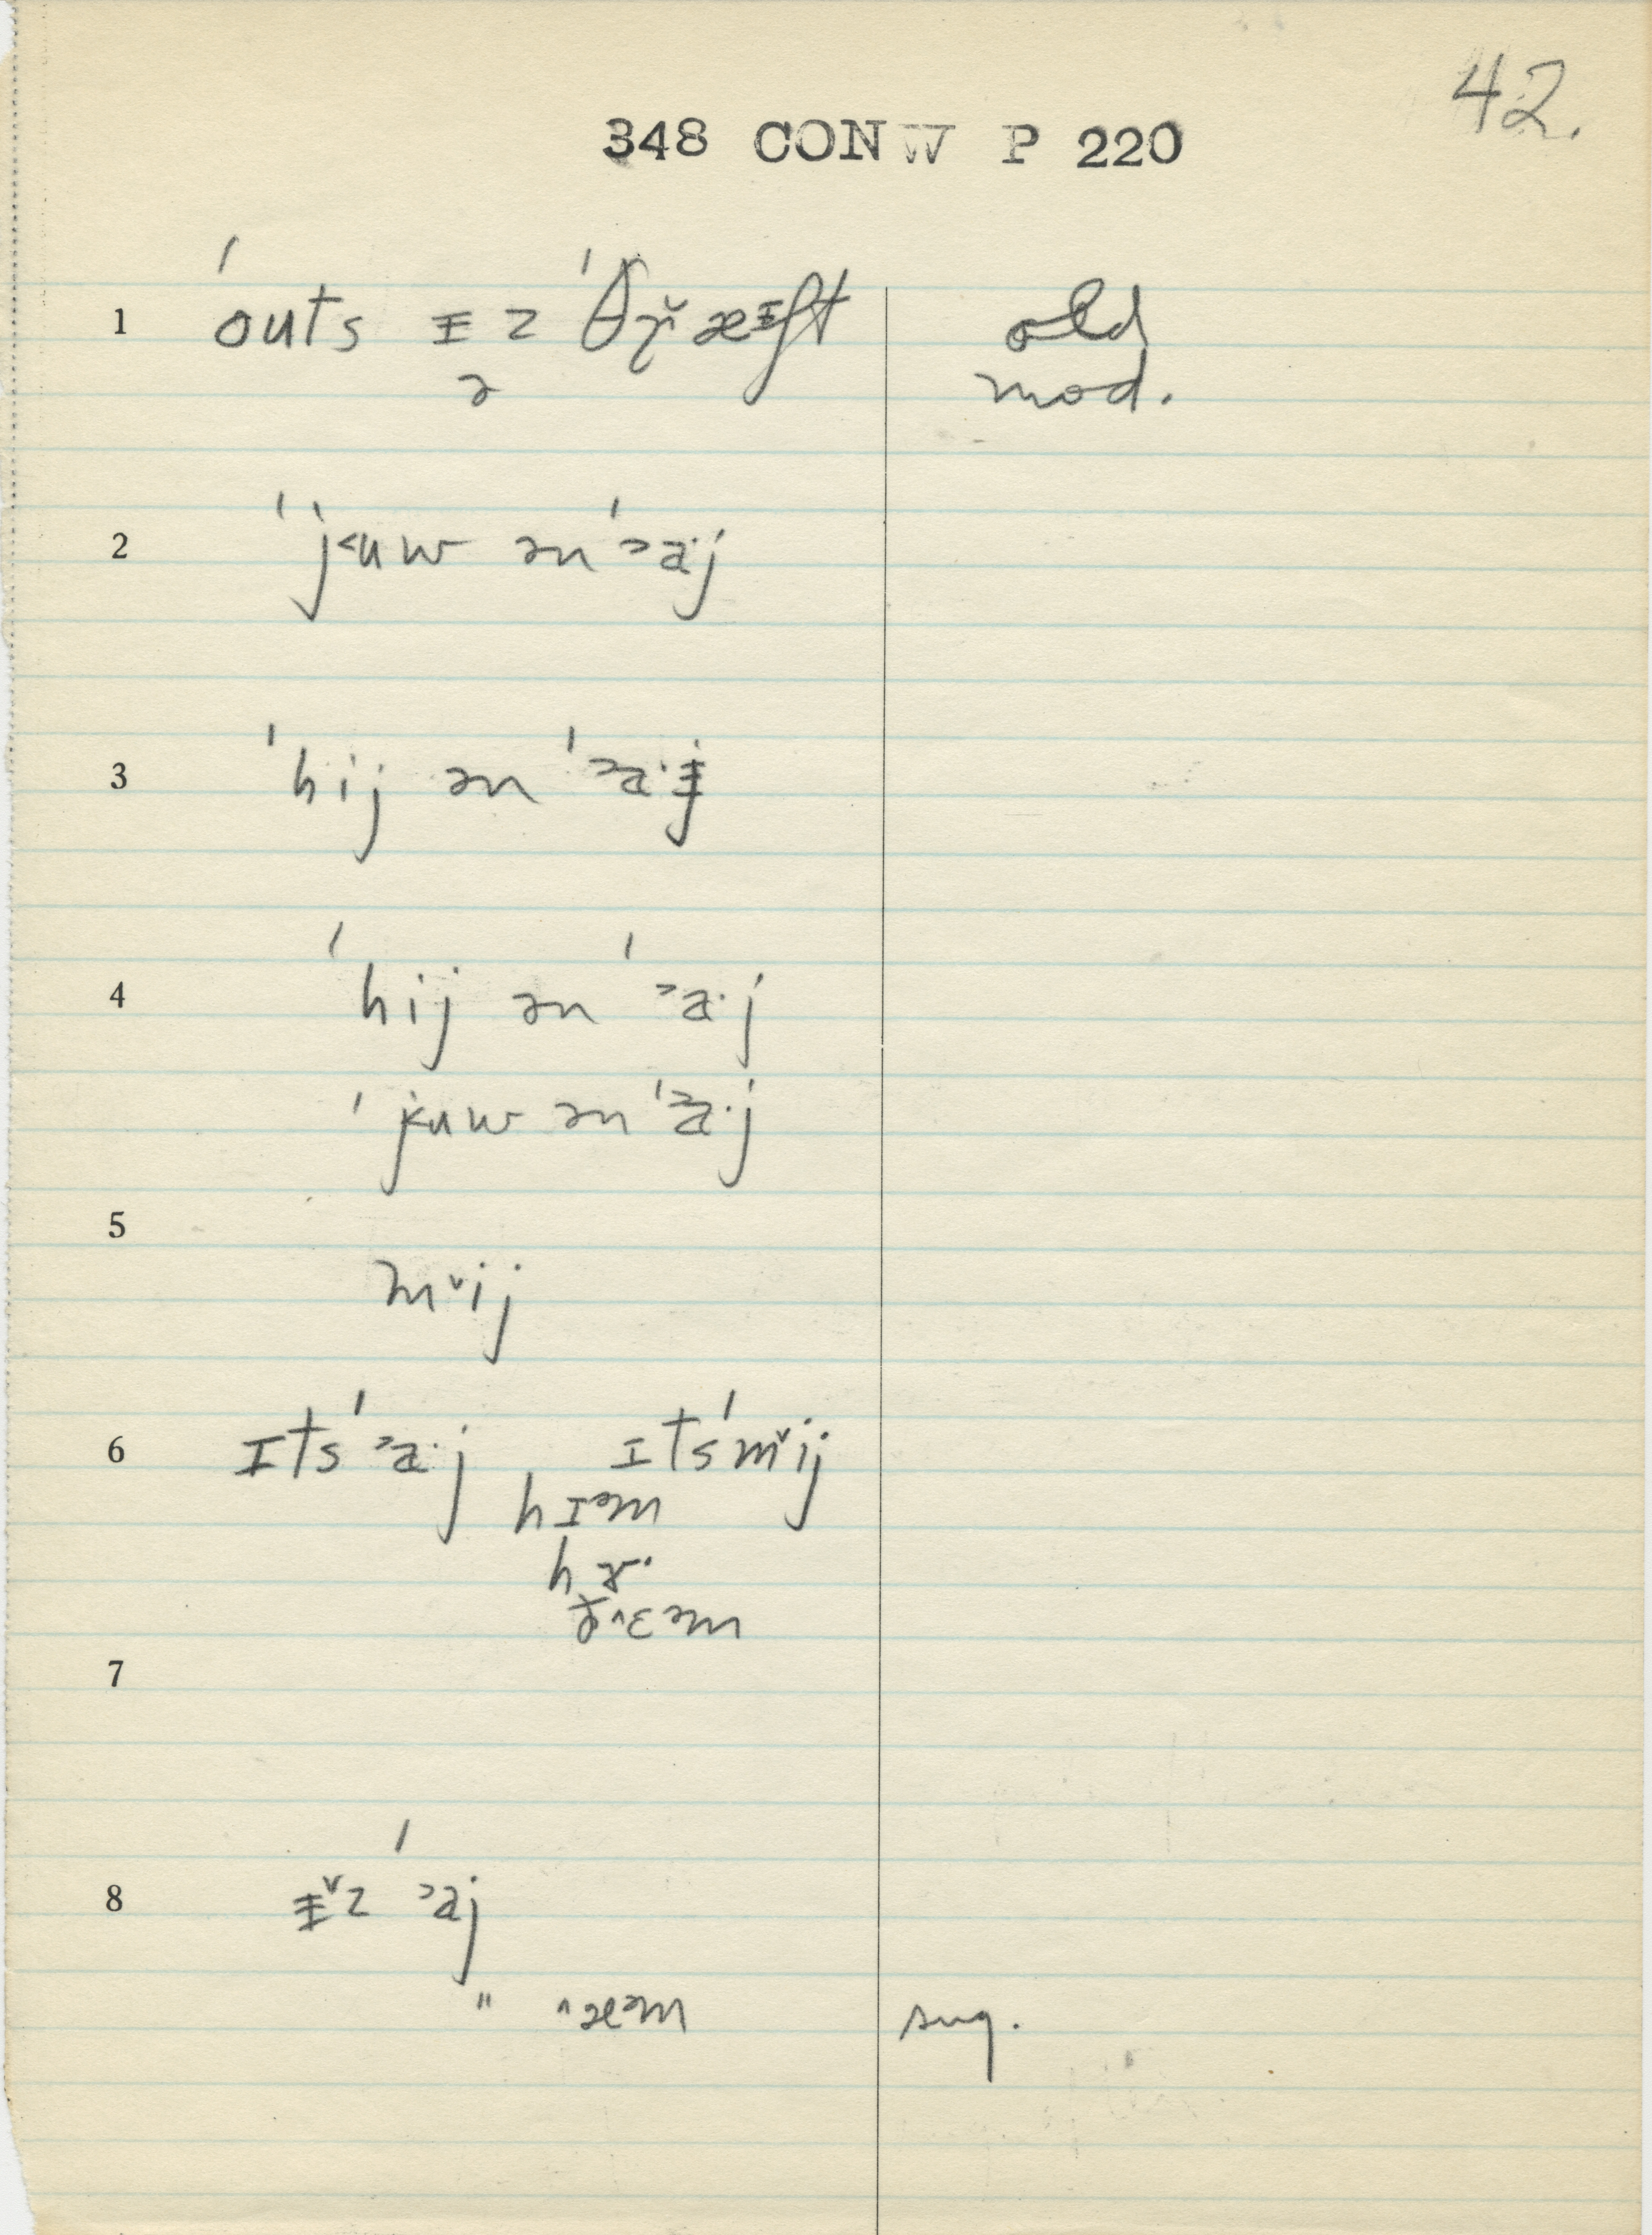 42.
348 CONW P 220
1 ˈouts ɪ̵z ˈθɾ̌æɪ̵ft old
ə mod.
2 ˈj˂uw ən ˈ˃a·j
3 ˈhij ən ˈ˃a·j
4 ˈhij ən ˈ˃a·j
ˈj˂uw ən ˈ˃a·j
5
mˇij
6 ɪtsˈ˃a·j ɪtsˈmˇij
hɪəm
hɤ·
ð^ɛəm
7
8 ɪ̵ˇz ˈ˃aj
" ^æəm sug.